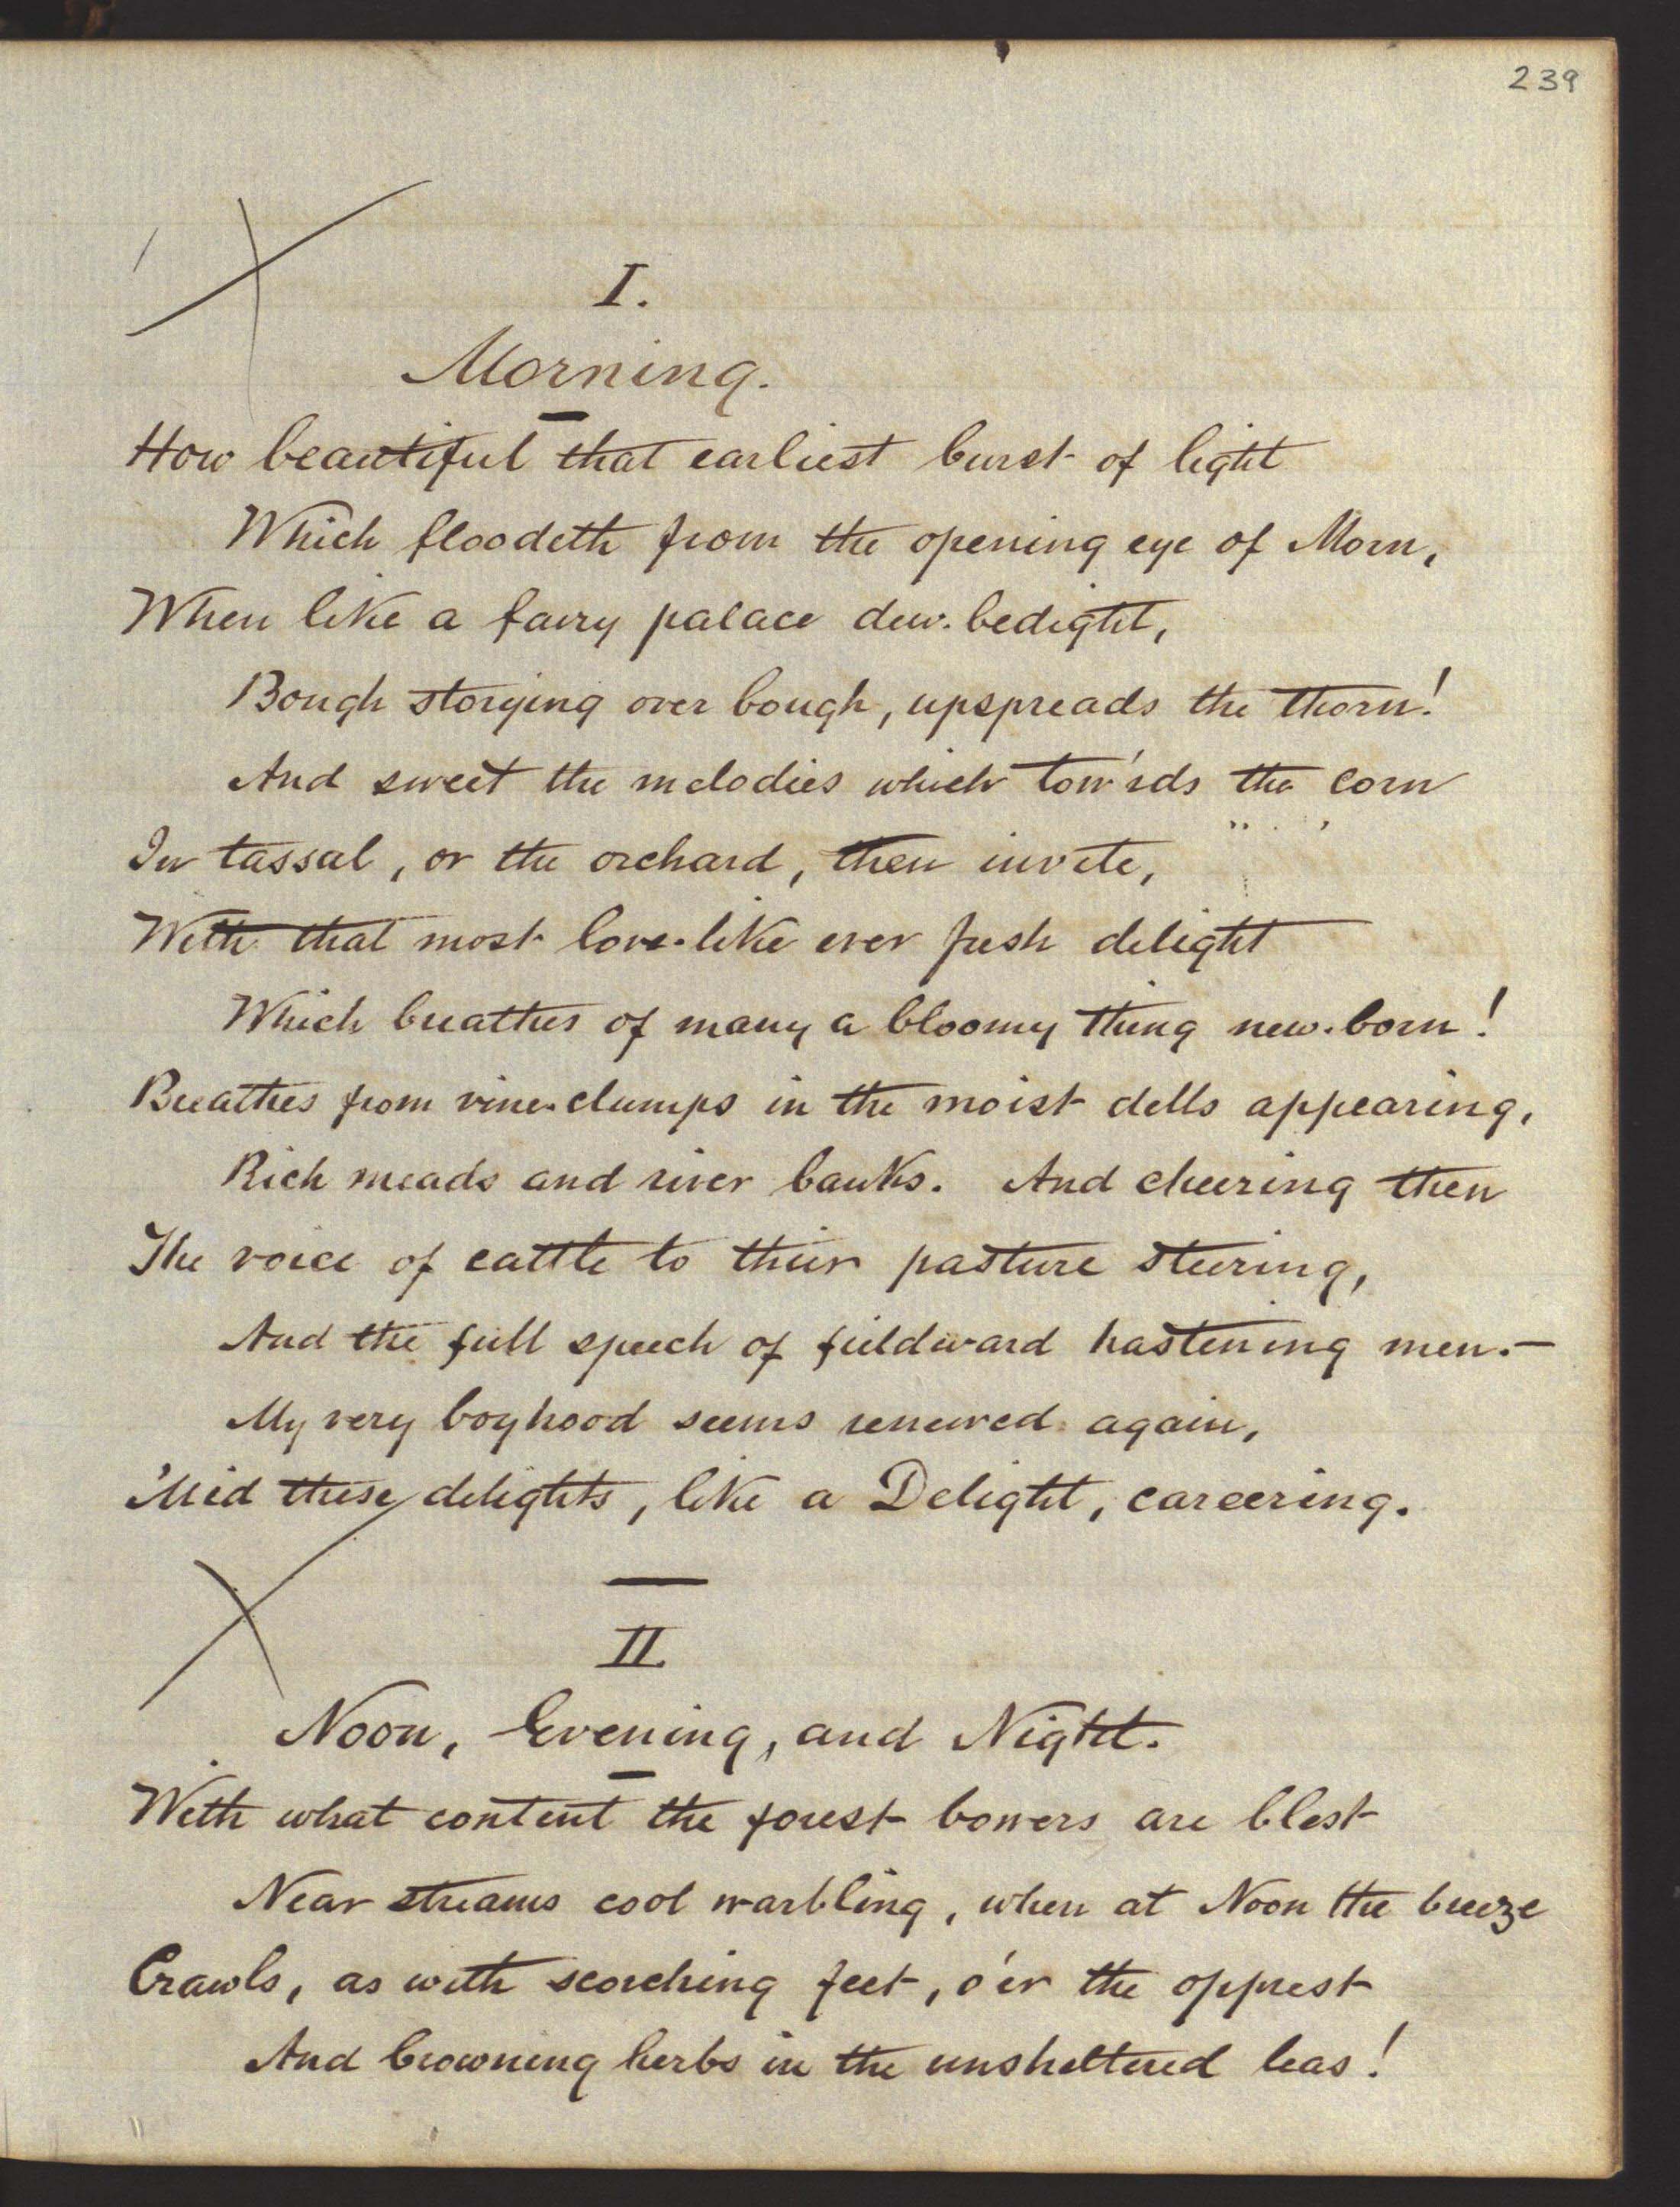 239
I.
Morning.
How beautiful that earliest burst of light
Which floodeth from the opening eye of Morn,
When like a fairy palace dew-bedight,
Bough storying over bough, upspreads the thorn!
And sweet the melodies which tow'rds the corn
In tassal, or the orchard, then invite,
With that most love-like ever fresh delight
Which breathes of many a bloomy thing new-born!
Breathes from vine-clumps in the moist dells appearing,
Rich meads and river banks. And cheering then
The voice of cattle to their pasture steering,
And the full speech of fieldward hastening men.—
My very boyhood seems renewed again,
'Mid these delights, like a Delight, careering.
II
Noon, Evening, and Night.
With what content the forest bowers are blest
Near streams cool warbling, when at Noon the breeze
Crawls, as with scorching feet, o'er the opprest
And browning herbs in the unsheltered leas!